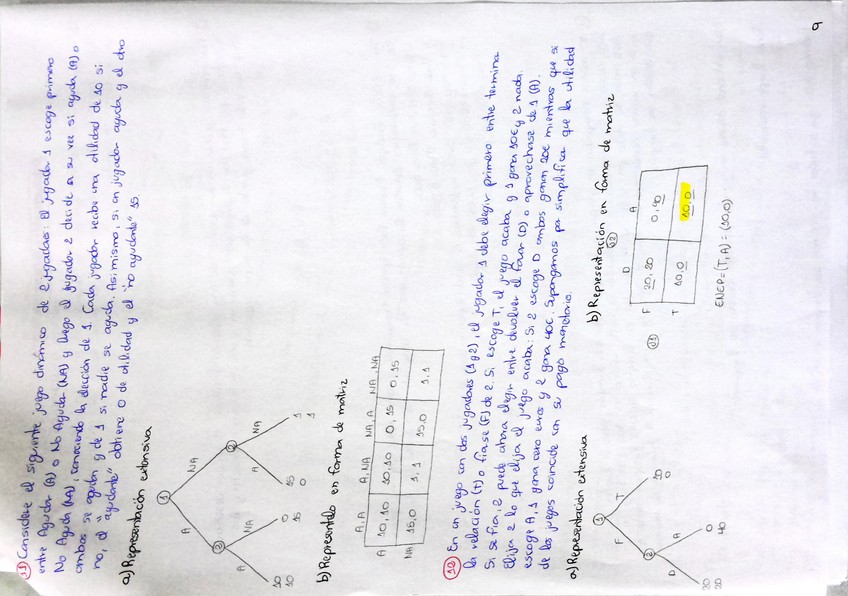 11) Considere el siguiente juego dinámico de 2 jugadores: El jugador 1 escoge primero
entre Ayudar (A) o No Ayudar (NA) y luego el jugador 2 decide a su vez si ayuda (A) o
No Ayuda (NA), conociendo la elección de 1. Cada jugador recibe una utilidad de 10 si
ambos se ayudan y de 1 si nadie se ayuda. Asimismo, si un jugador ayuda y el otro
no, el "ayudante" obtiene 0 de utilidad y el "no ayudante" 15
a) Representación extensiva
1
A NA
2 2
A NA A NA
10 0 15 1
10 15 0 1
b) Represéntelo en forma de matriz
A, A A, NA NA, A NA, NA
A 10, 10 10, 10 0, 15 0, 15
NA 15, 0 1, 1 15, 0 1, 1
12) En un juego con dos jugadores (1 y 2), el jugador 1 debe elegir primero entre termina
la relación (T) o fiarse (F) de 2. Si escoge T, el juego acaba y 1 gana 10€ y 2 nada.
Si se fía, 2 puede ahora elegir entre devolver el favor (D) o aprovecharse de 1 (A).
Elija 2 lo que elija el juego acaba: Si 2 escoge D ambos ganan 20€ mientras que si
escoge A, 1 gana cero euros y 2 gana 40€. Supongamos pa simplificar que la utilidad
de los juegos coincide con su pago monetario.
a) Representación extensiva
1
F T
2 10
0
D A
20 0
20 40
b) Representación en forma de matriz
J2
D A
J1 F 20, 20 0, 40
T 10, 0 10, 0
ENEP = (T, A) = (10,0)
9